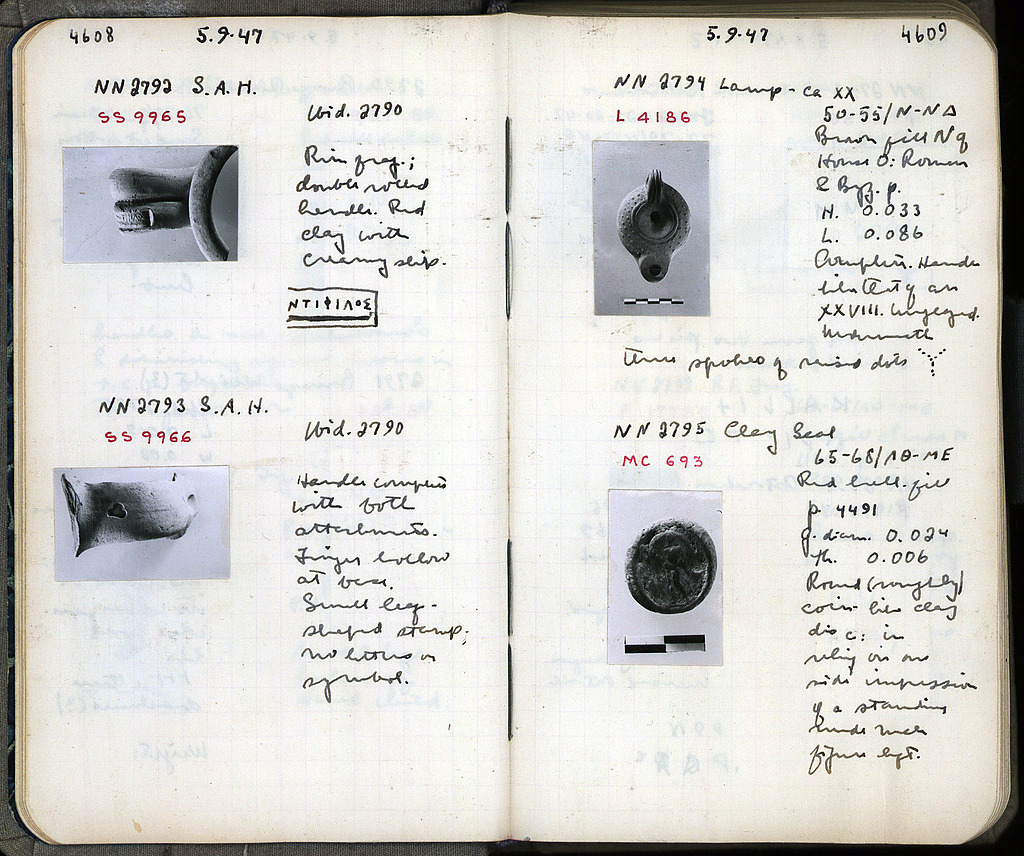 4608
5.9.47
NN 2792 S.A.H.
SS 9965
Ibid. 2790
Rim frag.;
double rolled
handle. Red
clay with
creamy slip.
ΝΤΙΦΙΛΟΣ
NN 2793 S.A.H.
SS 9966
Ibid. 2790
Handle complete
with both
attachments.
Finger hollow
at base.
Small leaf-
shaped stamp;
no letters or
symbol.
5.9.47
4609
NN 2794 Lamp - ca XX
L 4186
50-55/Ν-ΝΔ
Brown fill N of
House O: Roman
& Byz. p.
H. 0.033
L. 0.086
Complete. Handle
like that of an
XXVIII. Unglazed.
Underneath
three spokes of raised dots
NN 2795 Clay Seal
MC 693
65-68/ΛΘ-ΜΕ
Red fill
p. 4491
g. diam. 0.024
Th. 0.006
Round (roughly)
coin-like clay
disc: in
relief on one
side impression
of a standing
nude male
figure left.